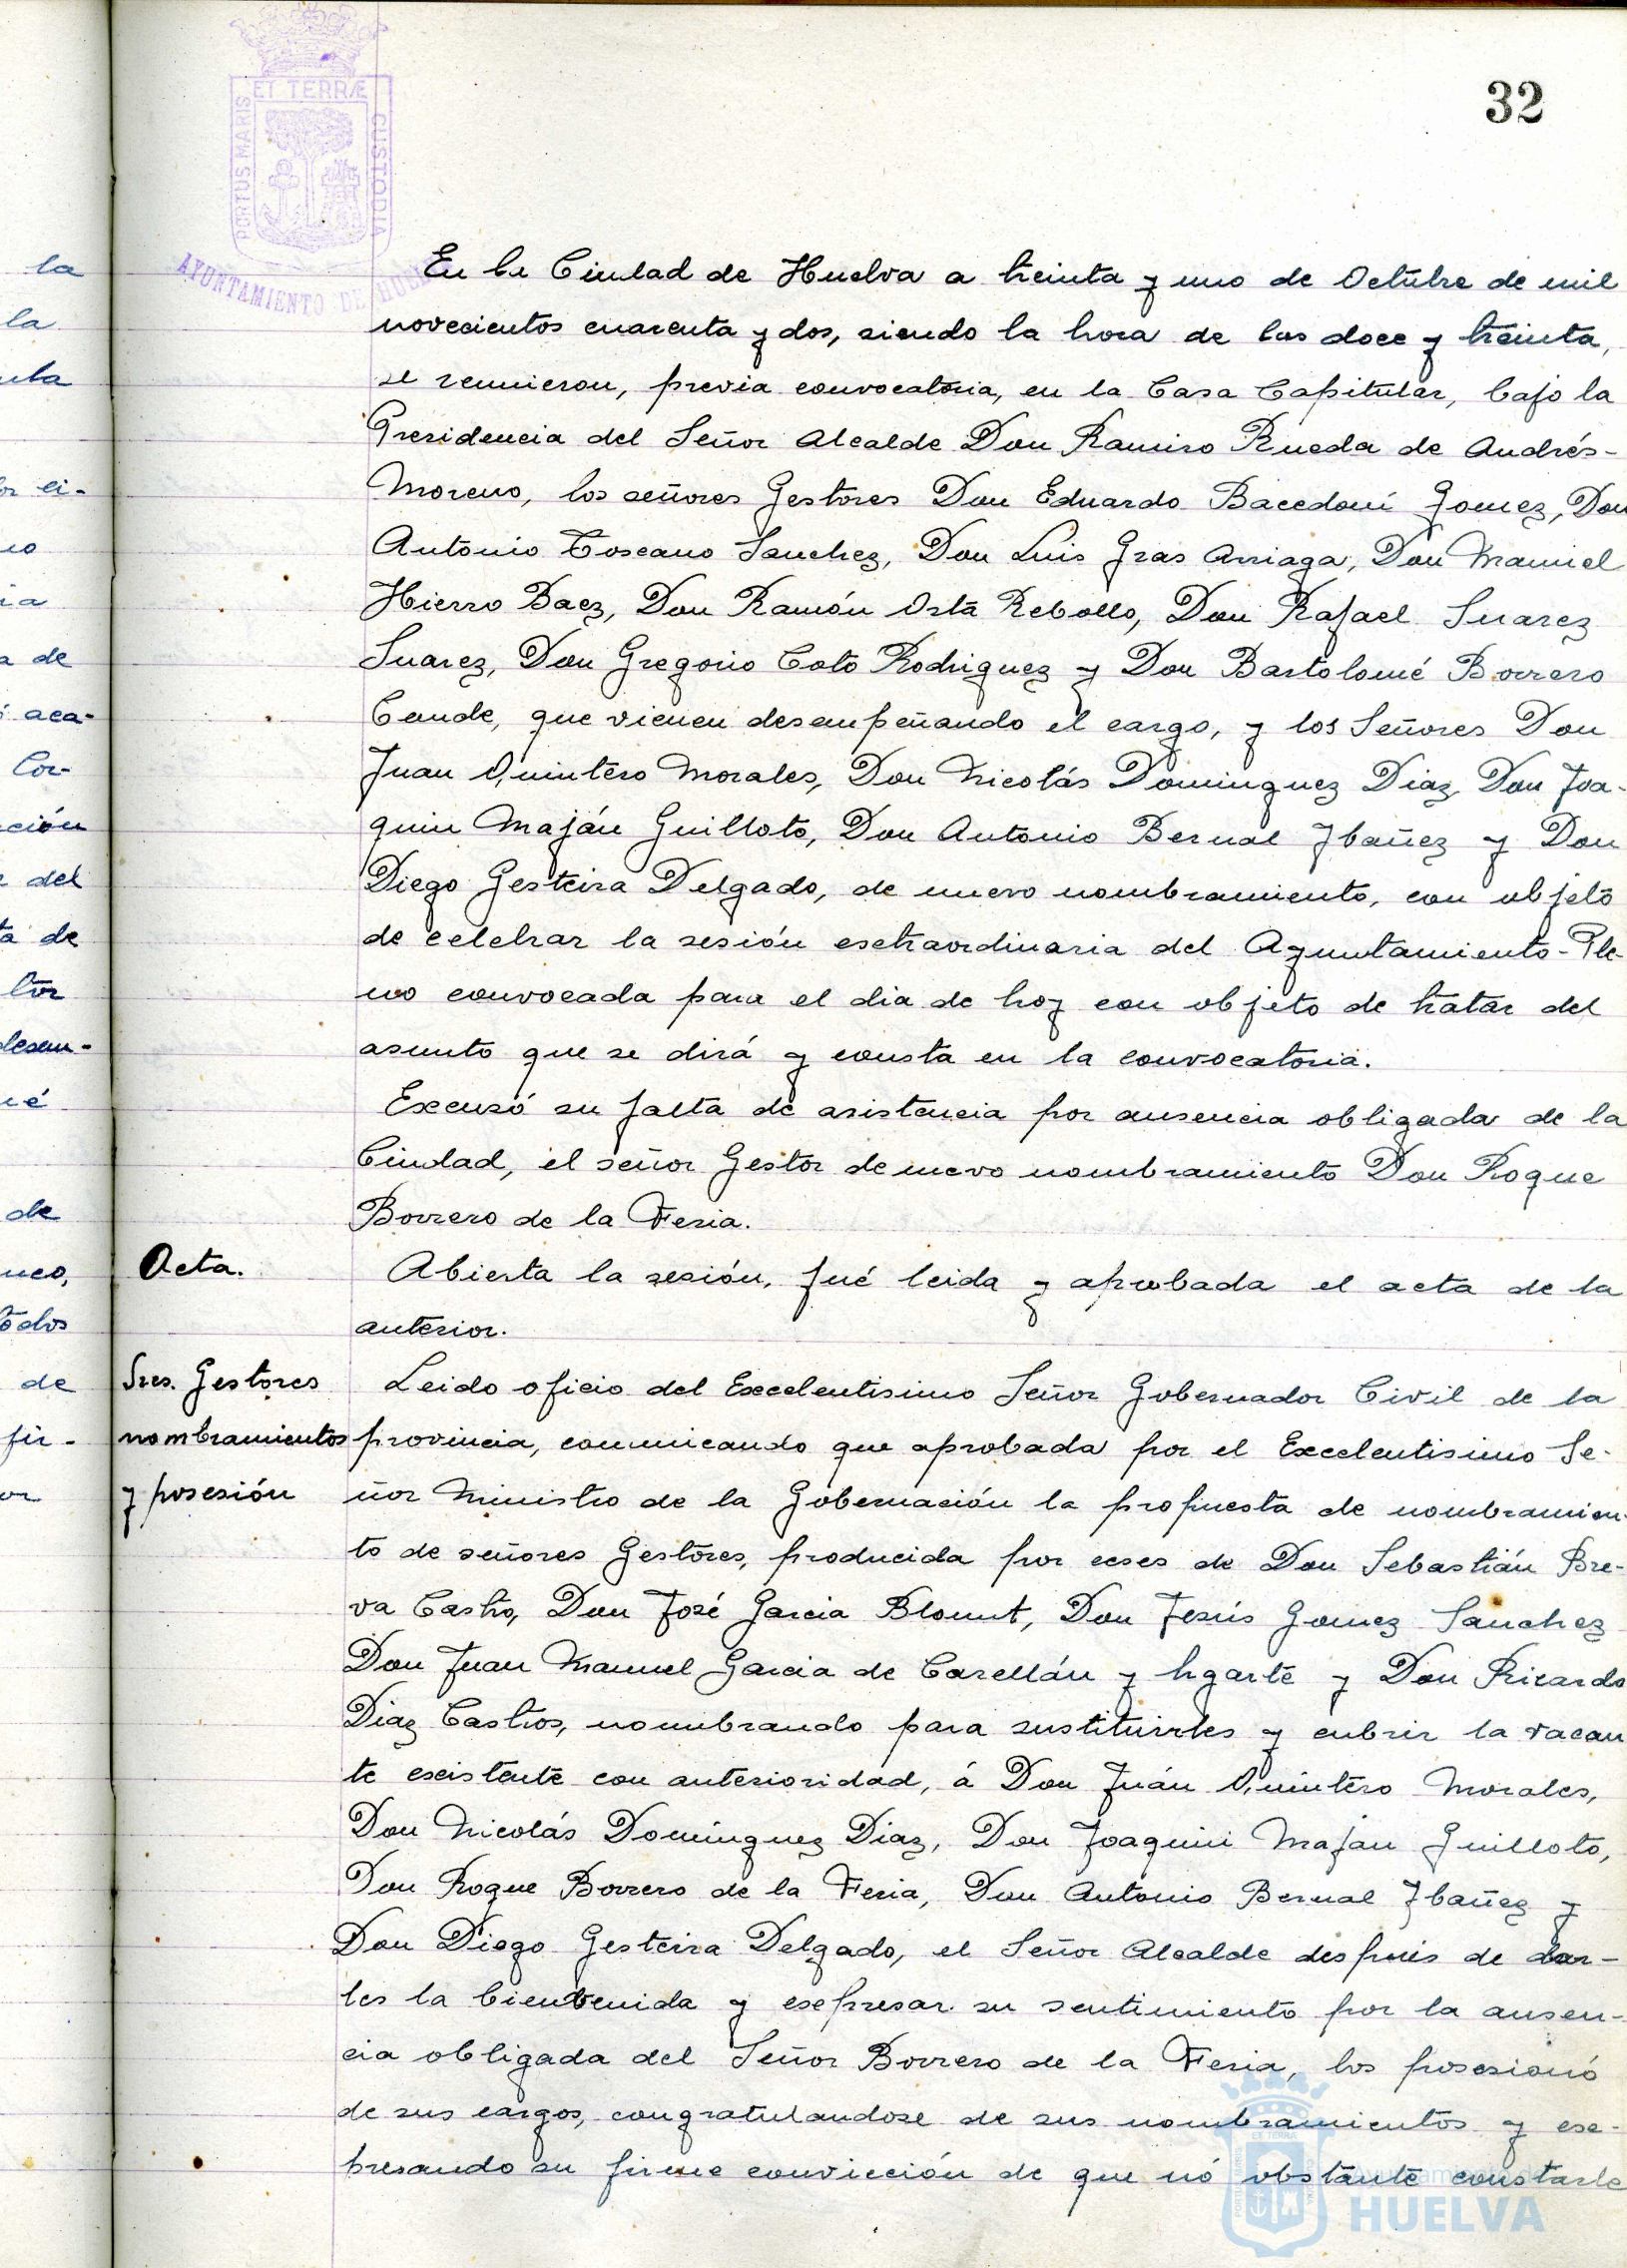 32
PORTUS MARIS ET TERRÆ CUSTODIA
AYUNTAMIENTO DE HUELVA
En la Ciudad de Huelva a treinta y uno de Octubre de mil
novecientos cuarenta y dos, siendo la hora de las doce y treinta,
se reunieron, previa convocatoria, en la Casa Capitular, bajo la
Presidencia del Señor Alcalde Don Ramiro Rueda de Andrés-
Moreno, los señores Gestores Don Eduardo Bacedoni Gomez, Don
Antonio Toscano Sanchez, Don Luis Gras Arriaga, Don Manuel
Hierro Baez, Don Ramón Orta Rebollo, Don Rafael Suarez
Suarez, Don Gregorio Coto Rodriguez y Don Bartolomé Borrero
Conde, que vienen desempeñando el cargo, y los Señores Don
Juan Quintero Morales, Don Nicolás Dominguez Diaz, Don Joa-
quin Maján Guilloto, Don Antonio Bernal Ybañez y Don
Diego Gesteira Delgado, de nuevo nombramiento, con objeto
de celebrar la sesión esctraordinaria del Ayuntamiento-Ple-
no convocada para el dia de hoy con objeto de tratar del
asunto que se dirá y consta en la convocatoria.
Excusó su falta de asistencia por ausencia obligada de la
Ciudad, el señor Gestor de nuevo nombramiento Don Roque
Borrero de la Feria.
Acta. Abierta la sesión, fué leida y aprobada el acta de la
anterior.
Sres. Gestores Leido oficio del Excelentisimo Señor Gobernador Civil de la
nombramientos provincia, comunicando que aprobada por el Excelentisimo Se-
y posesión ñor Ministro de la Gobernación la propuesta de nombramien-
to de señores Gestores, producida por ceses de Don Sebastián Bre-
va Castro, Don José Garcia Blount, Don Jesús Gomez Sanchez
Don Juan Manuel Garcia de Carellán y Ugarte y Don Ricardo
Diaz Castros, nombrando para sustituirles y cubrir la vacan
te escistente con anterioridad, á Don Juán Quintero Morales,
Don Nicolás Domínguez Diaz, Don Joaquin Majan Guilloto,
Don Roque Borrero de la Feria, Don Antonio Bernal Ybañez y
Don Diego Gesteira Delgado, el Señor Alcalde después de dar-
les la bienvenida y escpresar su sentimiento por la ausen-
cia obligada del Señor Borrero de la Feria, los posesionó
de sus cargos, congratulandose de sus nombramientos y esc-
presando su firme convicción de que nó obstante constarle
HUELVA